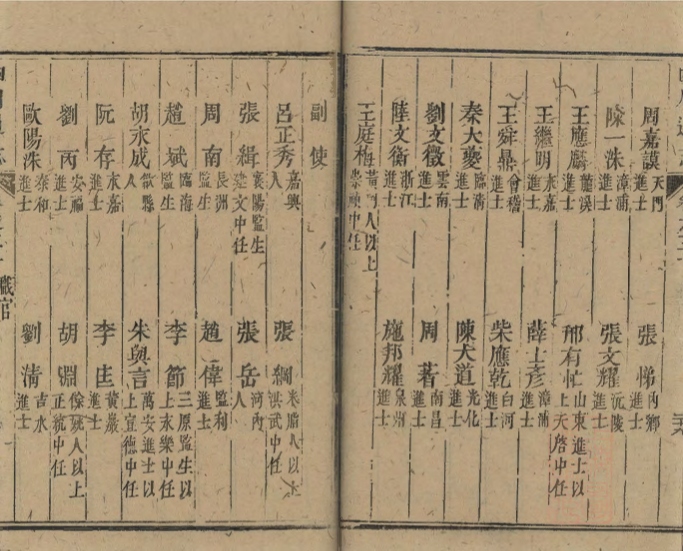 周嘉謨天門進士 張悌內鄉進士
陳一洙漳浦進士 張文耀沅陵進士
王應麟龍溪進士 邢有忙山東進士以上天啓中任
王繼明永嘉進士 薛士彥漳浦進士
王舜鼎會稽進士 柴應乾白河進士
秦大夔臨清進士 陳大道光化進士
劉文徵雲南進士 周著南昌進士
陸文衡浙江進士 施邦耀泉州進士
王庭梅黃岡人以上崇禎中任
副使
呂正秀嘉興人 張綱米脂人以上洪武中任
張緝襄陽監生建文中任 張岳河內
周南長洲監生 趙偉監利進士
趙斌臨海監生 李節三原監生以上永樂中任
胡永成歙縣人 朱與言萬安進士以上宣德中任
阮存永嘉進士 李匡黃巖進士
劉丙安福進士 胡淵餘姚人以上正統中任
歐陽洙泰和進士 劉清吉水進士
職官